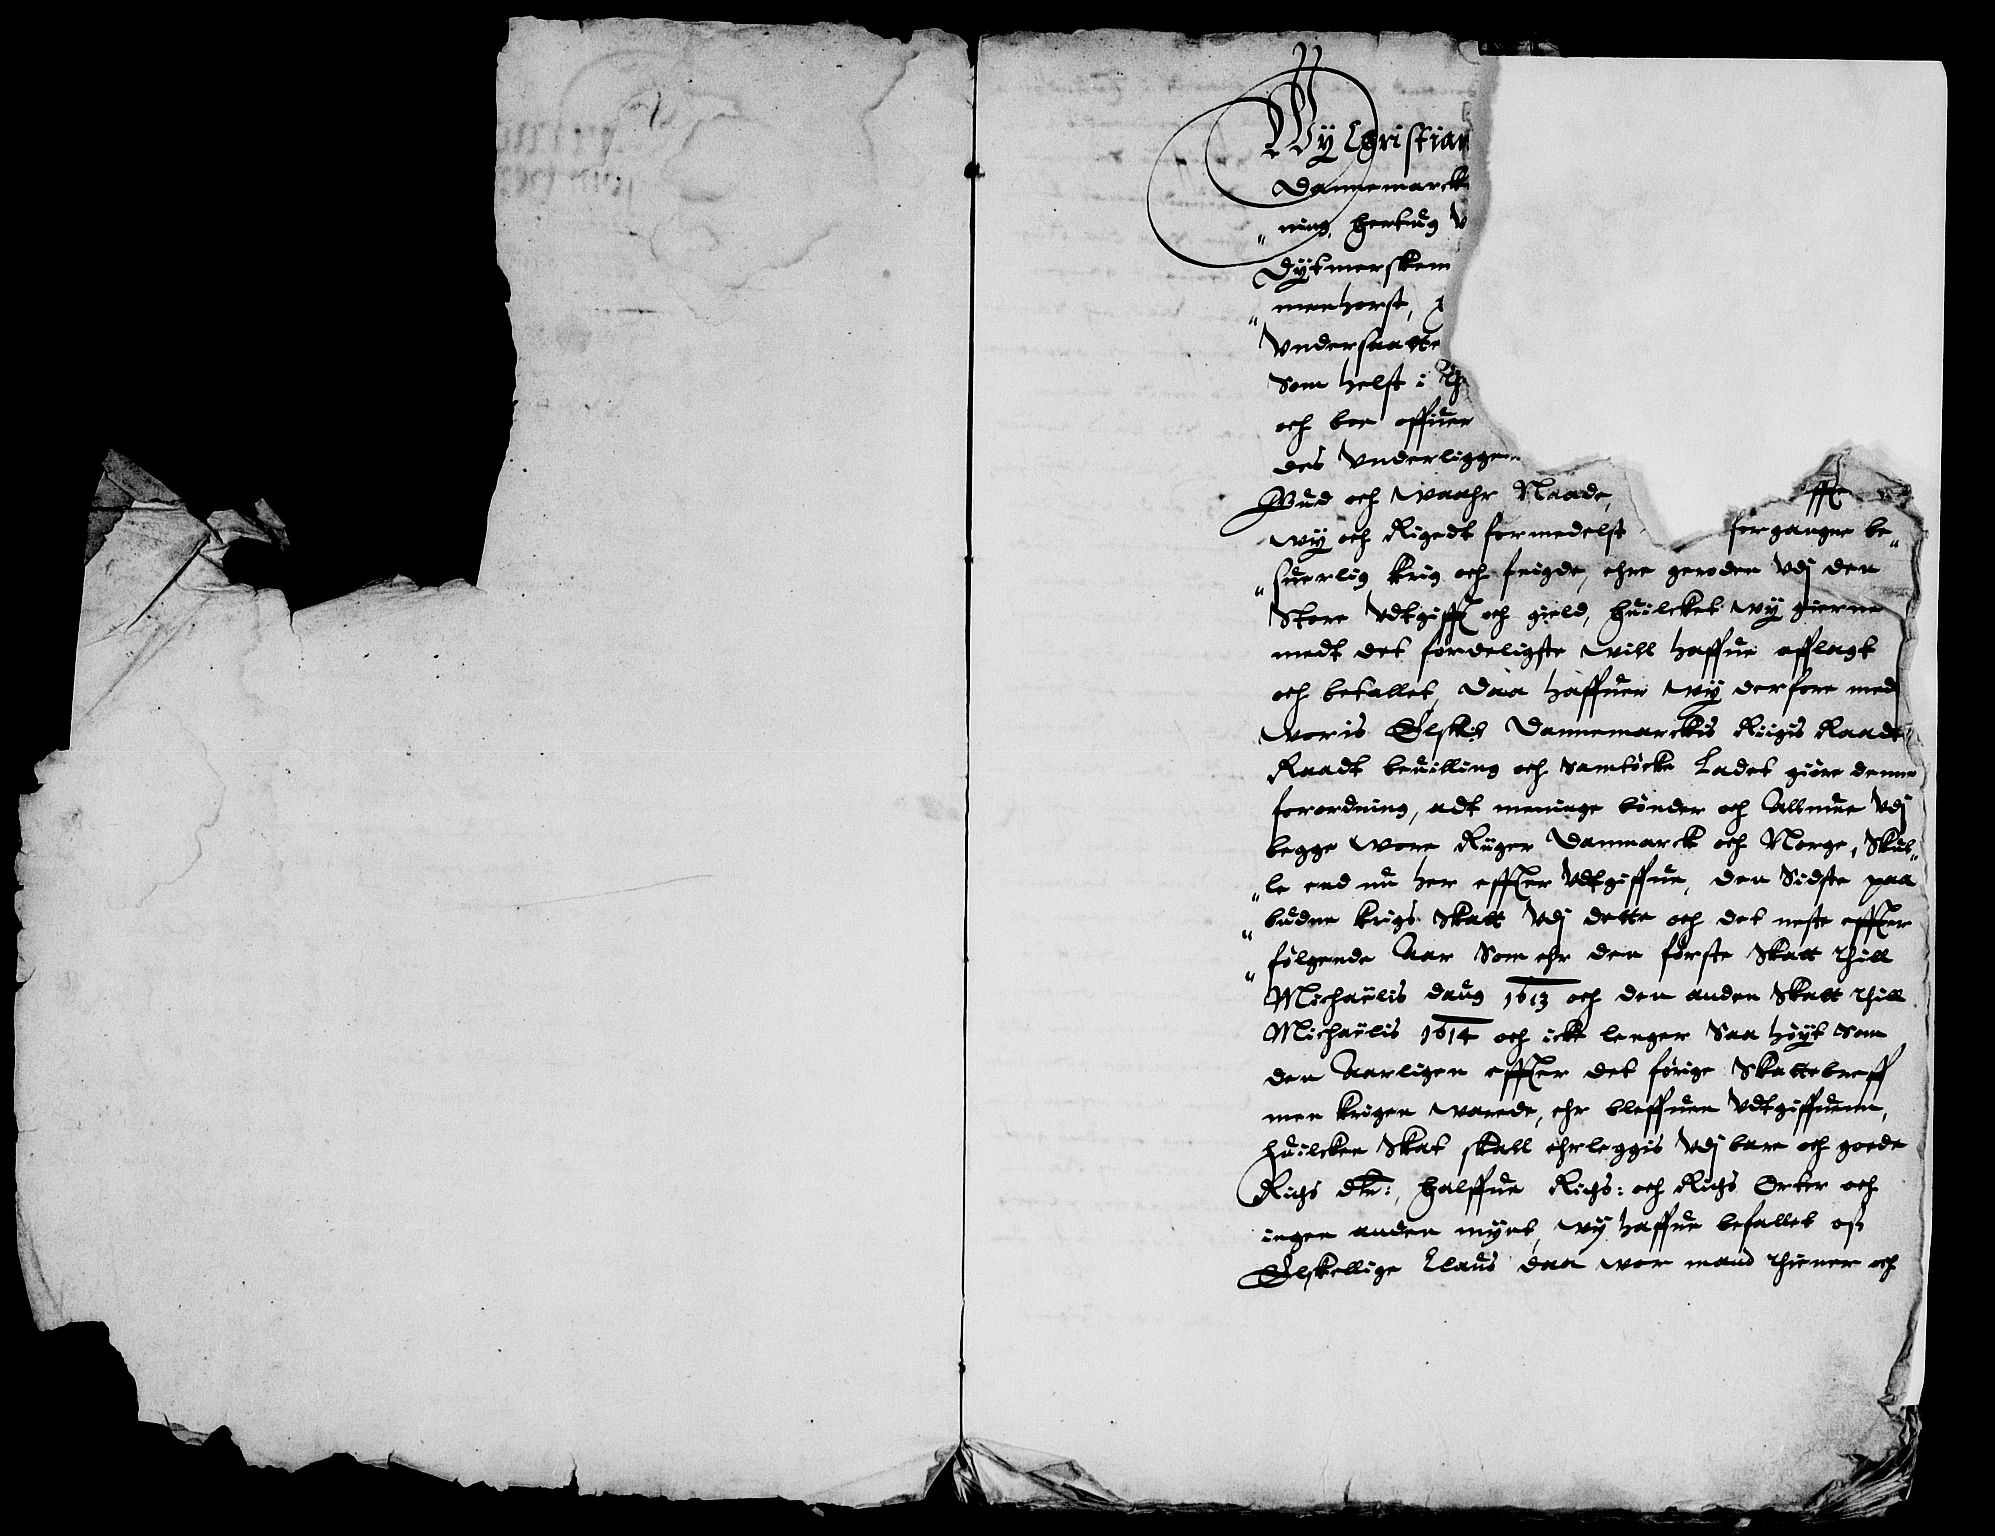 Wÿ Christian
Dannemarck
ning, Hertug
Dÿtmersken
menhorst,
Vndersaatte
Som helst i
och boe offuer
des Vnderliggen
Gud och waahr Naade,
wÿ och Rigedt formedelst forgangne be„
„suerlig krig och feigde, ehre geroden Vdj den
Store Vdtgifft och gield, huilcket wÿ gierne
medt det förderligste will haffue afflagt
och betallet, daa haffuer wÿ derfore med
woris Elskel: Dannemarckis Riigis Raadt
Raadt beuilling och Samtöcke Ladet giöre denne
forordning, adt meninge bönder och Allmue Vdj
begge wore Riiger Danmarck och Norge, Skul„
„le end nu her effter Vdtgiffue, den Sidste paa
„budne krigs Skatt Vdj dette och det neste effter
„fölgende Aar Som ehr den förste Skatt thill
Michaëlis daug 1613 och den anden Skatt thill
Michaëlis 1614 och icke lenger Saa höÿt Som
den Aarligen effter det förige Skattebreff
men krigen warede, ehr bleffuen Vdtgiffuenn,
huilcken Skat skall ehrleggis Vdj bare och goede
Rigs dlr:, Halffue Rigs: och Rigs Orter och
ingen anden mÿnt, wÿ haffue befallet oss
Elskellige Claus daa wor mand thiener och